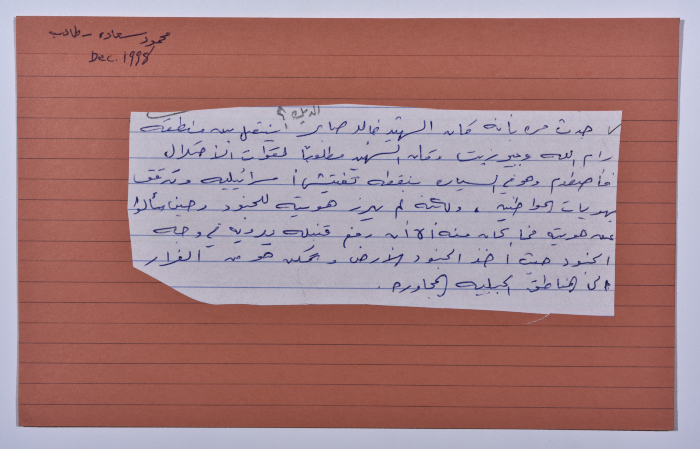 محمود سعاده - طالب
Dec. 1998
الديك ؟
حدث مره بأنه كان الشهيد خالد صابر يتنقل بين منطقة
رام الله وجبيرزيت وكان الشهيد مطلوباً لقوات الاحتلال
فأصطدم وهو في السياره بنقطة تفتيش اسرائيليه وتدقق
بهويات المواطنين ، ولكنه لم يبرز هويته للجنود وحينما سألوا
عن هويته فما كان منه الا ان رفع قنبله يدويه في وجه
الجنود حيث أخذ الجنود الأرض وتمكن هو من الفرار
الى المناطق الجبليه المجاوره .